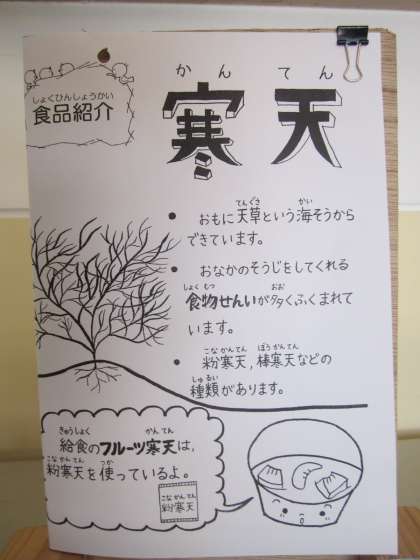 しょくひんしょうかい
食品紹介
かんてん
寒天
てんぐさ かい
● おもに天草という海そうから
できています。
● おなかのそうじをしてくれる
しょくもつ おお
食物せんいが多くふくまれて
います。
こなかんてん ぼうかんてん
● 粉寒天,棒寒天などの
しゅるい
種類があります。
きゅうしょく かんてん
給食のフルーツ寒天は,
こなかんてん つか
粉寒天を使っているよ。
こなかんてん
粉寒天